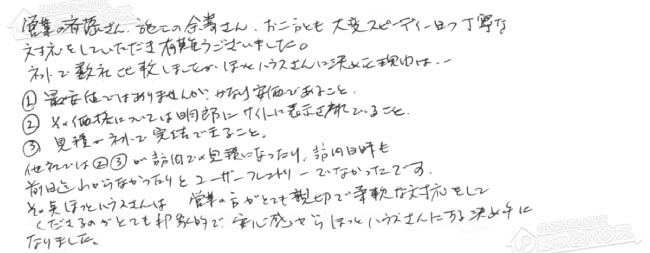 営業の斉藤さん、施工の余寿さん、お二方とも大変スピーディー且つ丁寧な
対応をしていただき有難うございました。
ネットで数社比較しましたが、ほっとハウスさんに決めた理由は、…
① 最安値ではありませんが、かなり安価であること、
② 又、価格については明朗にサイトに表示されていること、
③ 見積がネットで完結できること。
他社では②③が訪問での見積になったり、訪問日時も
前日迄わからなかったりとユーザーフレンドリーでなかったです。
その点ほっとハウスさんは 営業の方がとても親切で柔軟な対応をして
くださるのがとても印象的で、安心感からほっとハウスさんにする決め手に
なりました。